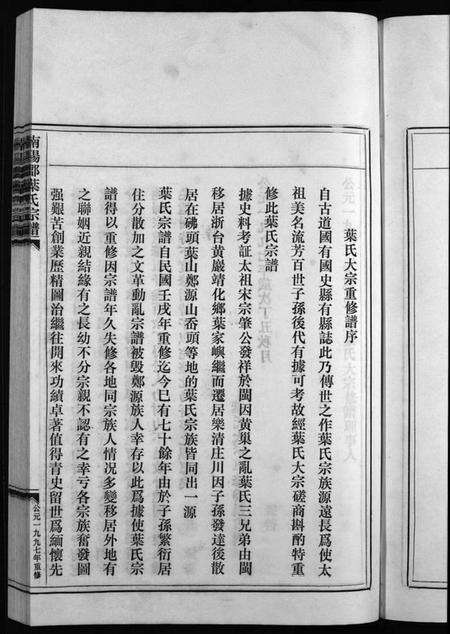 葉氏大宗重修譜序
自古道國有國史縣有縣誌此乃傳世之作葉氏宗族源遠長爲使太
祖美名流芳百世子孫後代有據可考故經葉氏大宗磋商斟酌特重
修此葉氏宗譜
據史料考証太祖宋宗肇公發祥於閩因黄巢之亂葉氏三兄弟由閩
移居浙台黄巖靖化鄉葉家嶼繼而遷居樂清庄川因子孫發達後散
居在佛頭葉山鄭源山岙頭等地的葉氏宗族皆同出一源
葉氏宗譜自民國壬戌年重修迄今巳有七十餘年由於子孫繁衍居
住分散加之文革動亂宗譜被毁鄭源族人幸存以此爲據使葉氏宗
譜得以重修因宗譜年久失修各地同宗族人情况多變移居外地有
之聯姻近親結緣有之長幼不分宗親不認有之幸亏各宗族奮發圖
强艱苦創業歷精圖治繼往開來功績卓著值得青史留世爲緬懷先
南陽郡葉氏宗譜
公元一九九七年重修